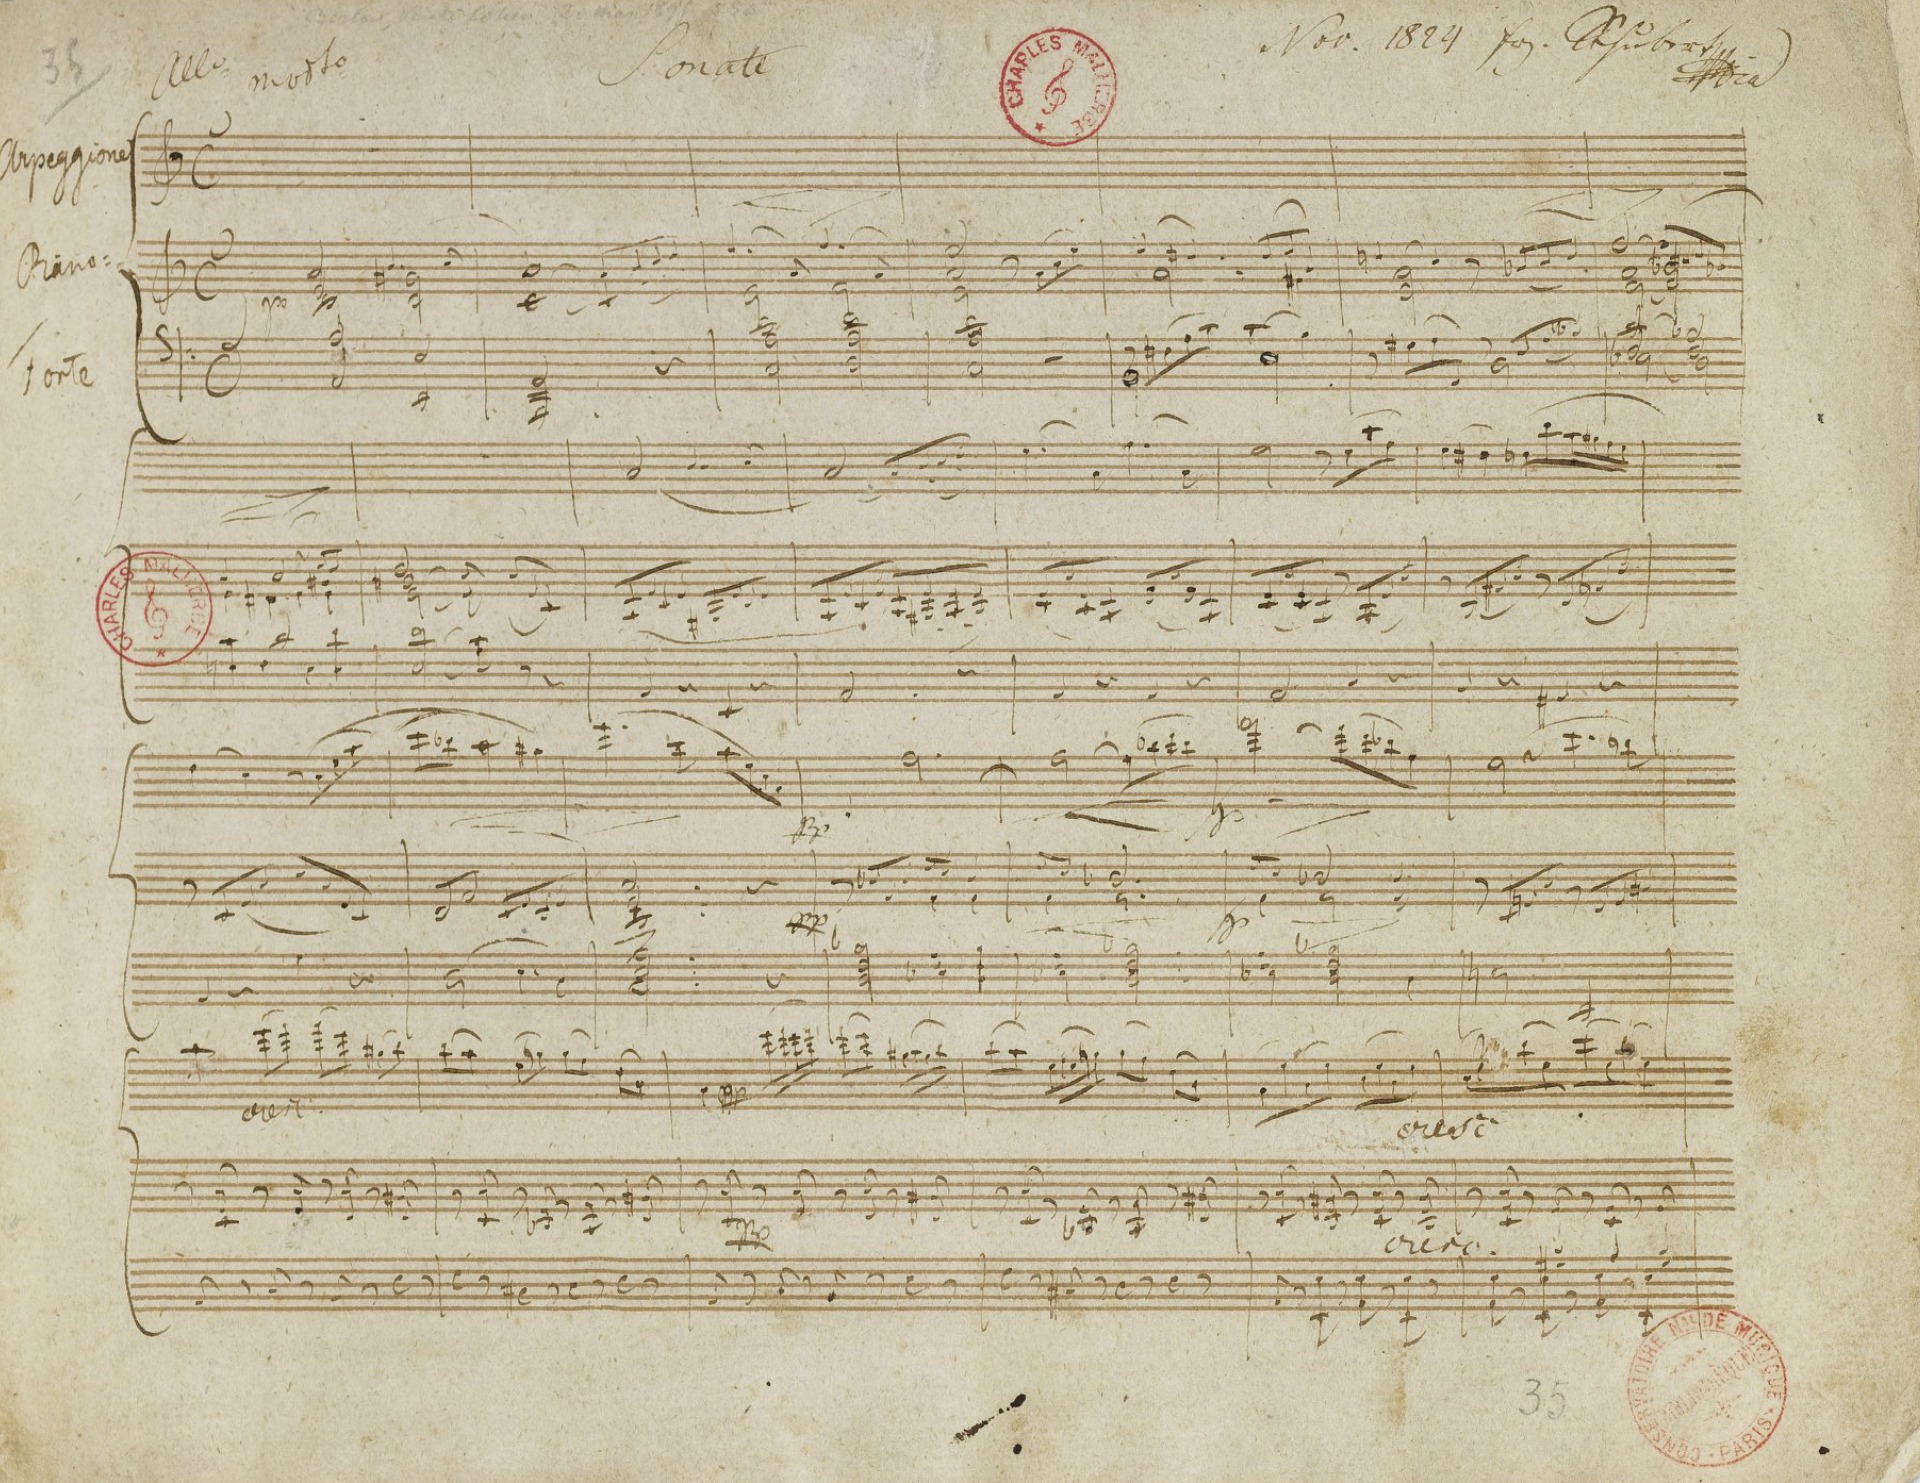 35
Allo modto
Sonate
Nov. 1824 frz. Schubert mpia
CHARLES MALHERBE
Arpeggione
Piano=
Forte
pp
CHARLES MALHERBE
cresc.
cresc
cresc.
35
CONSERVATOIRE NAL DE MUSIQUE · PARIS ·
BIBLIOTHÈQUE